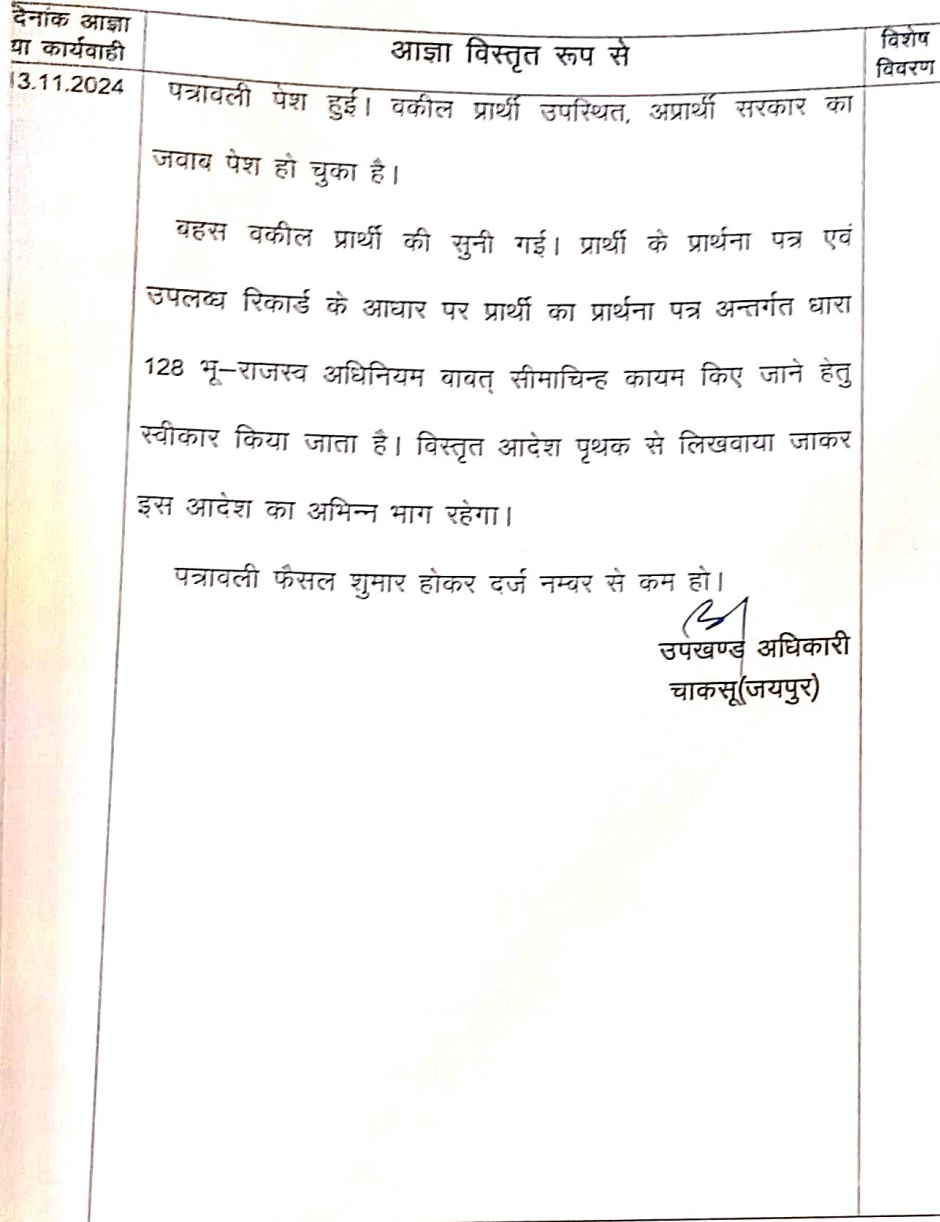 देनांक आज्ञा
या कार्यवाही
आज्ञा विस्तृत रूप से
विशेष
विवरण
13.11.2024
पत्रावली पेश हुई। वकील प्रार्थी उपस्थित, अप्रार्थी सरकार का
जवाब पेश हो चुका है।
बहस वकील प्रार्थी की सुनी गई। प्रार्थी के प्रार्थना पत्र एवं
उपलब्ध रिकार्ड के आधार पर प्रार्थी का प्रार्थना पत्र अन्तर्गत धारा
128 भू–राजस्व अधिनियम वावत् सीमाचिन्ह कायम किए जाने हेतु
स्वीकार किया जाता है। विस्तृत आदेश पृथक से लिखवाया जाकर
इस आदेश का अभिन्न भाग रहेगा।
पत्रावली फैसल शुमार होकर दर्ज नम्वर से कम हो।
उपखण्ड अधिकारी
चाकसू(जयपुर)